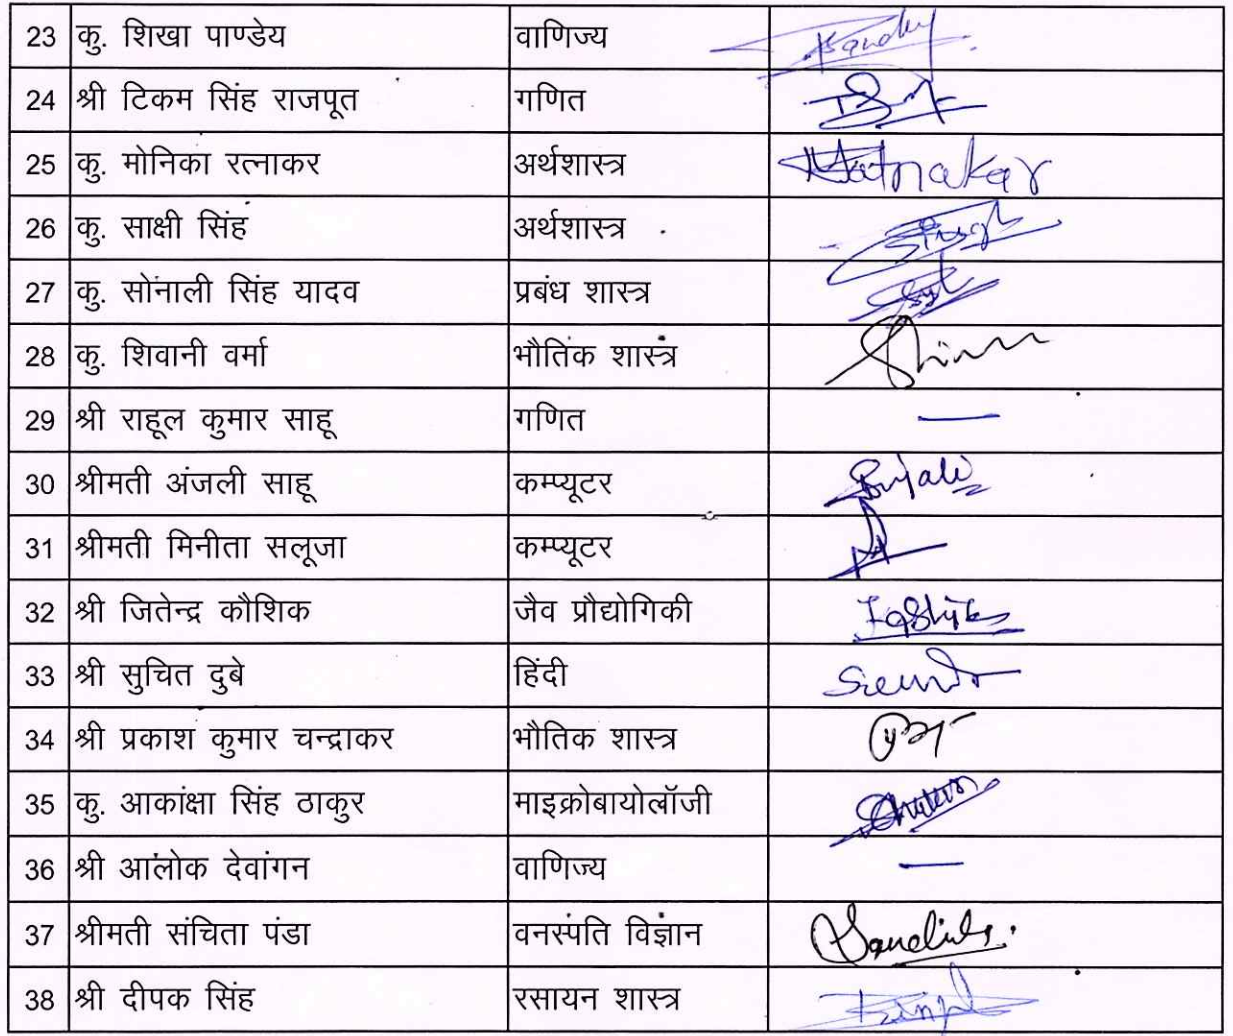 23 कु. शिखा पाण्डेय वाणिज्य Pandey
24 श्री टिकम सिंह राजपूत गणित
25 कु. मोनिका रत्नाकर अर्थशास्त्र Ratnakar
26 कु. साक्षी सिंह अर्थशास्त्र Singh
27 कु. सोनाली सिंह यादव प्रबंध शास्त्र
28 कु. शिवानी वर्मा भौतिक शास्त्र
29 श्री राहूल कुमार साहू गणित —
30 श्रीमती अंजली साहू कम्प्यूटर Anjali
31 श्रीमती मिनीता सलूजा कम्प्यूटर
32 श्री जितेन्द्र कौशिक जैव प्रौद्योगिकी
33 श्री सुचित दुबे हिंदी
34 श्री प्रकाश कुमार चन्द्राकर भौतिक शास्त्र
35 कु. आकांक्षा सिंह ठाकुर माइक्रोबायोलॉजी
36 श्री आलोक देवांगन वाणिज्य —
37 श्रीमती संचिता पंडा वनस्पति विज्ञान
38 श्री दीपक सिंह रसायन शास्त्र